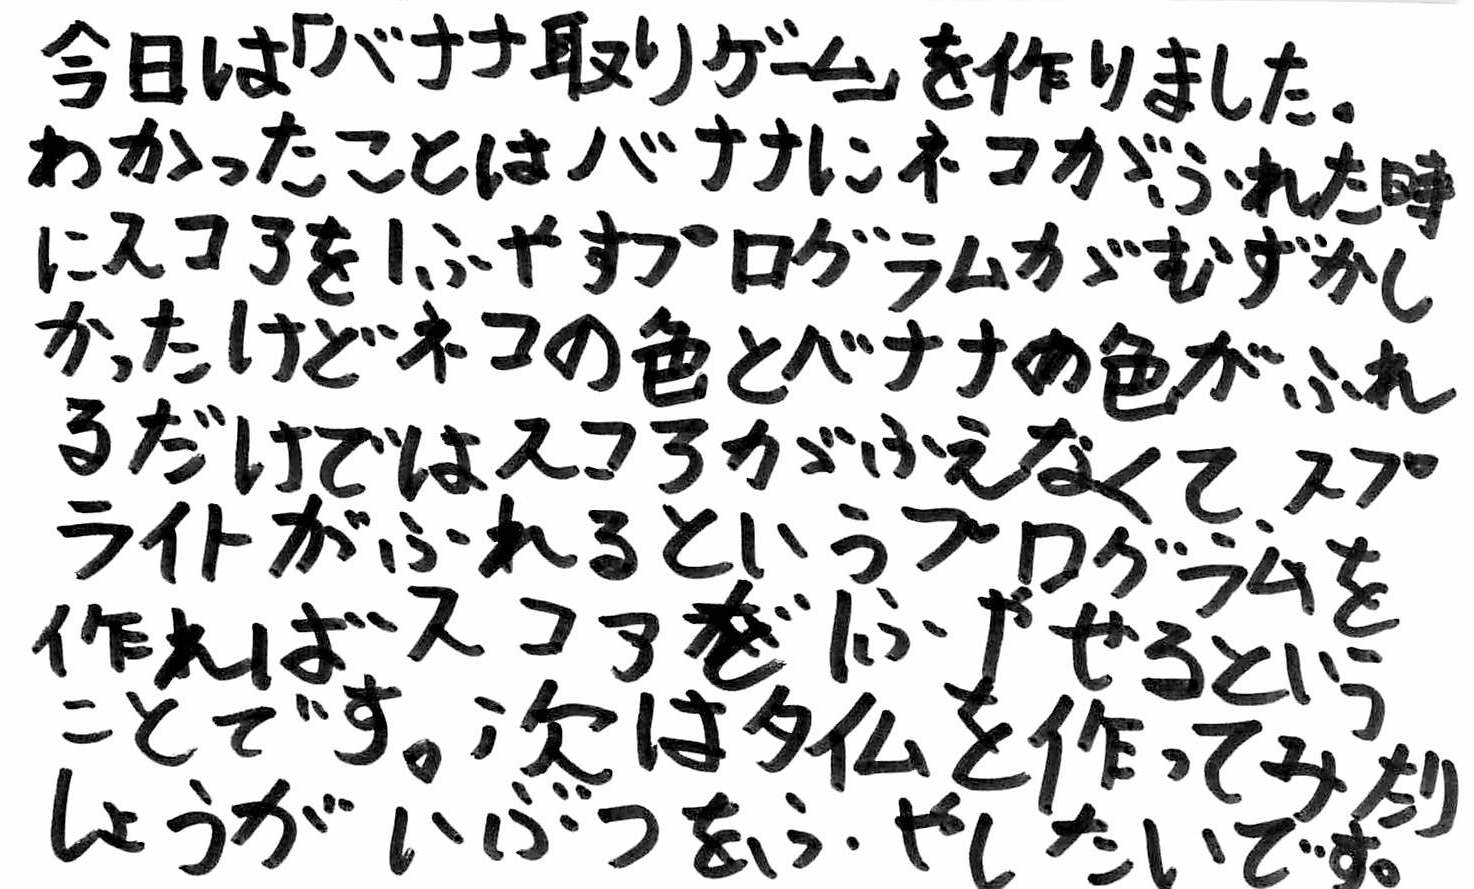 今日は「バナナ取りゲーム」を作りました。
わかったことはバナナにネコがふれた時
にスコアを1ふやすプログラムがむずかし
かったけどネコの色とバナナの色がふれ
るだけではスコアがふえなくて、スプ
ライトがふれるというプログラムを
作ればスコアを1ふやせるという
ことです。次はタイムを作ってみたり
しょうがいぶつをふやしたいです。